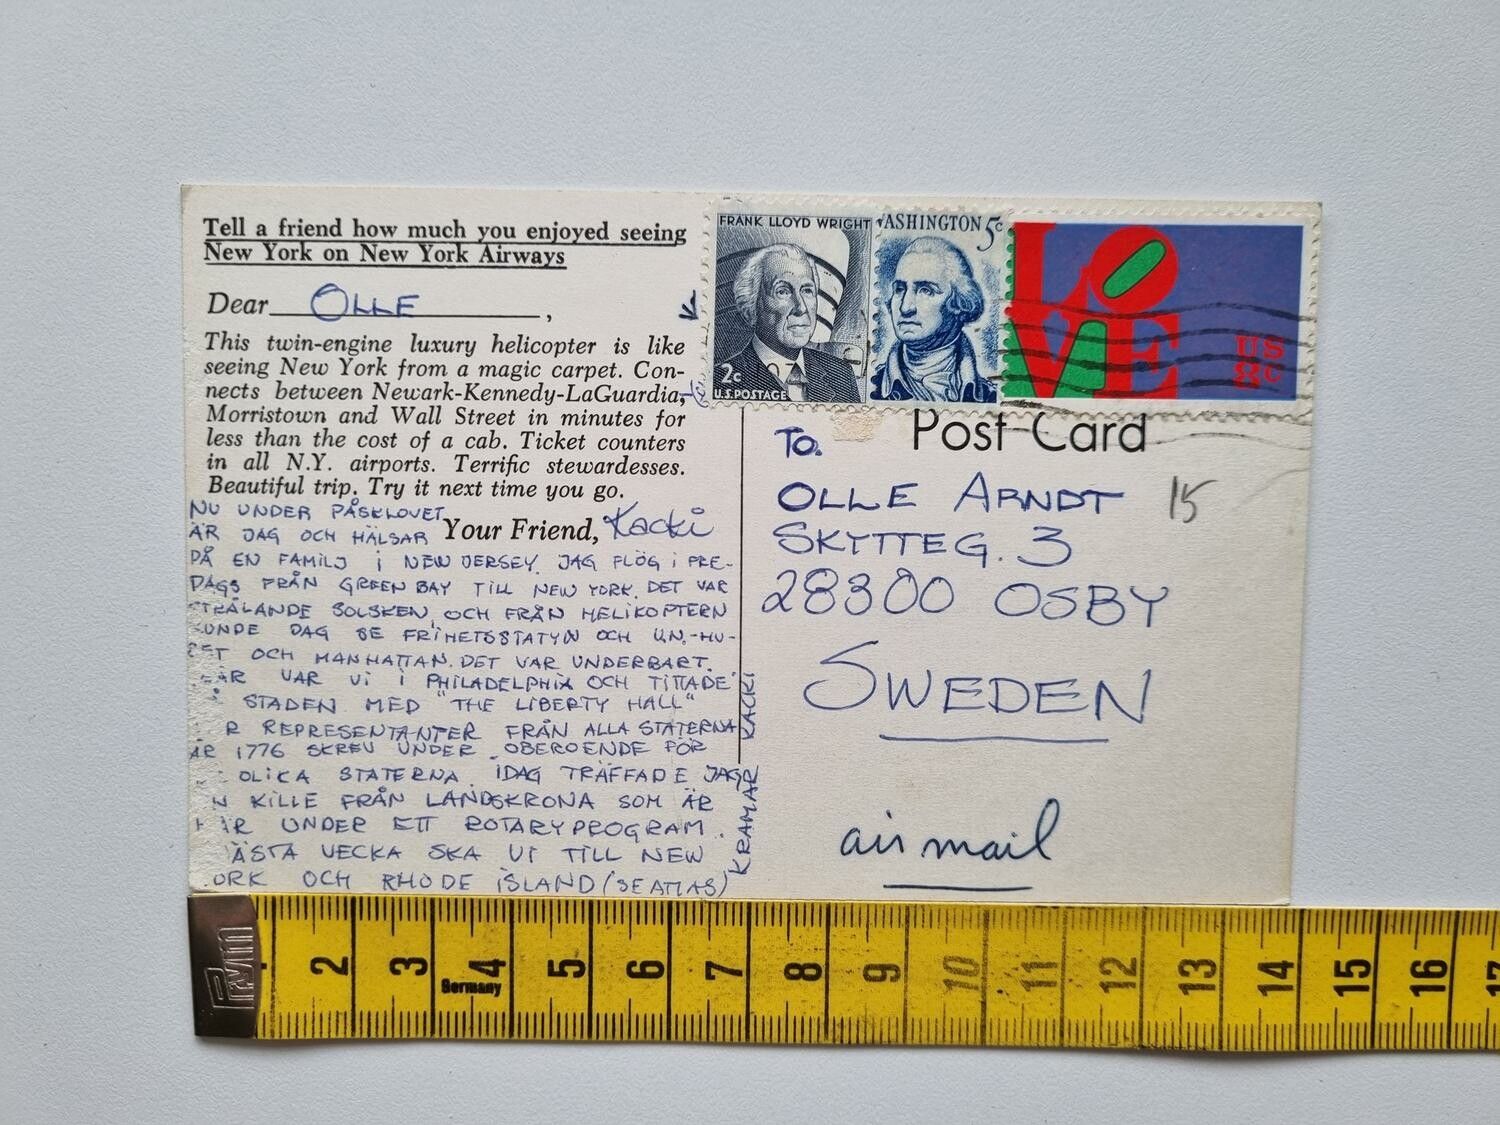 Tell a friend how much you enjoyed seeing
New York on New York Airways
Dear OLLE,
This twin-engine luxury helicopter is like
seeing New York from a magic carpet. Con-
nects between Newark-Kennedy-LaGuardia,
Morristown and Wall Street in minutes for
less than the cost of a cab. Ticket counters
in all N.Y. airports. Terrific stewardesses.
Beautiful trip. Try it next time you go.
Your Friend, Kacki
NU UNDER PÅSKLOVET
ÄR JAG OCH HÄLSAR
PÅ EN FAMILJ I NEW JERSEY. JAG FLÖG I FRE-
DAGS FRÅN GREEN BAY TILL NEW YORK. DET VAR
STRÅLANDE SOLSKEN, OCH FRÅN HELIKOPTERN
KUNDE JAG SE FRIHETSSTATYN OCH U.N.-HU-
SET OCH MANHATTAN. DET VAR UNDERBART.
VAR VI I PHILADELPHIA OCH TITTADE
STADEN MED "THE LIBERTY HALL"
R REPRESENTANTER FRÅN ALLA STATERNA
ÅR 1776 SKREV UNDER OBEROENDE FÖR
OLIKA STATERNA. IDAG TRÄFFADE JAG
N KILLE FRÅN LANDSKRONA SOM ÄR
HÄR UNDER ETT ROTARYPROGRAM.
ÄSTA VECKA SKA VI TILL NEW
ORK OCH RHODE ISLAND
KRAMAR KACKI
FRANK LLOYD WRIGHT
2c
U.S. POSTAGE
WASHINGTON 5c
LOVE
US
8c
Post Card
To.
OLLE ARNDT
15
SKYTTEG. 3
28300 OSBY
SWEDEN
air mail
2 3 4 5 6 7 8 9 10 11 12 13 14 15 16 17
Germany